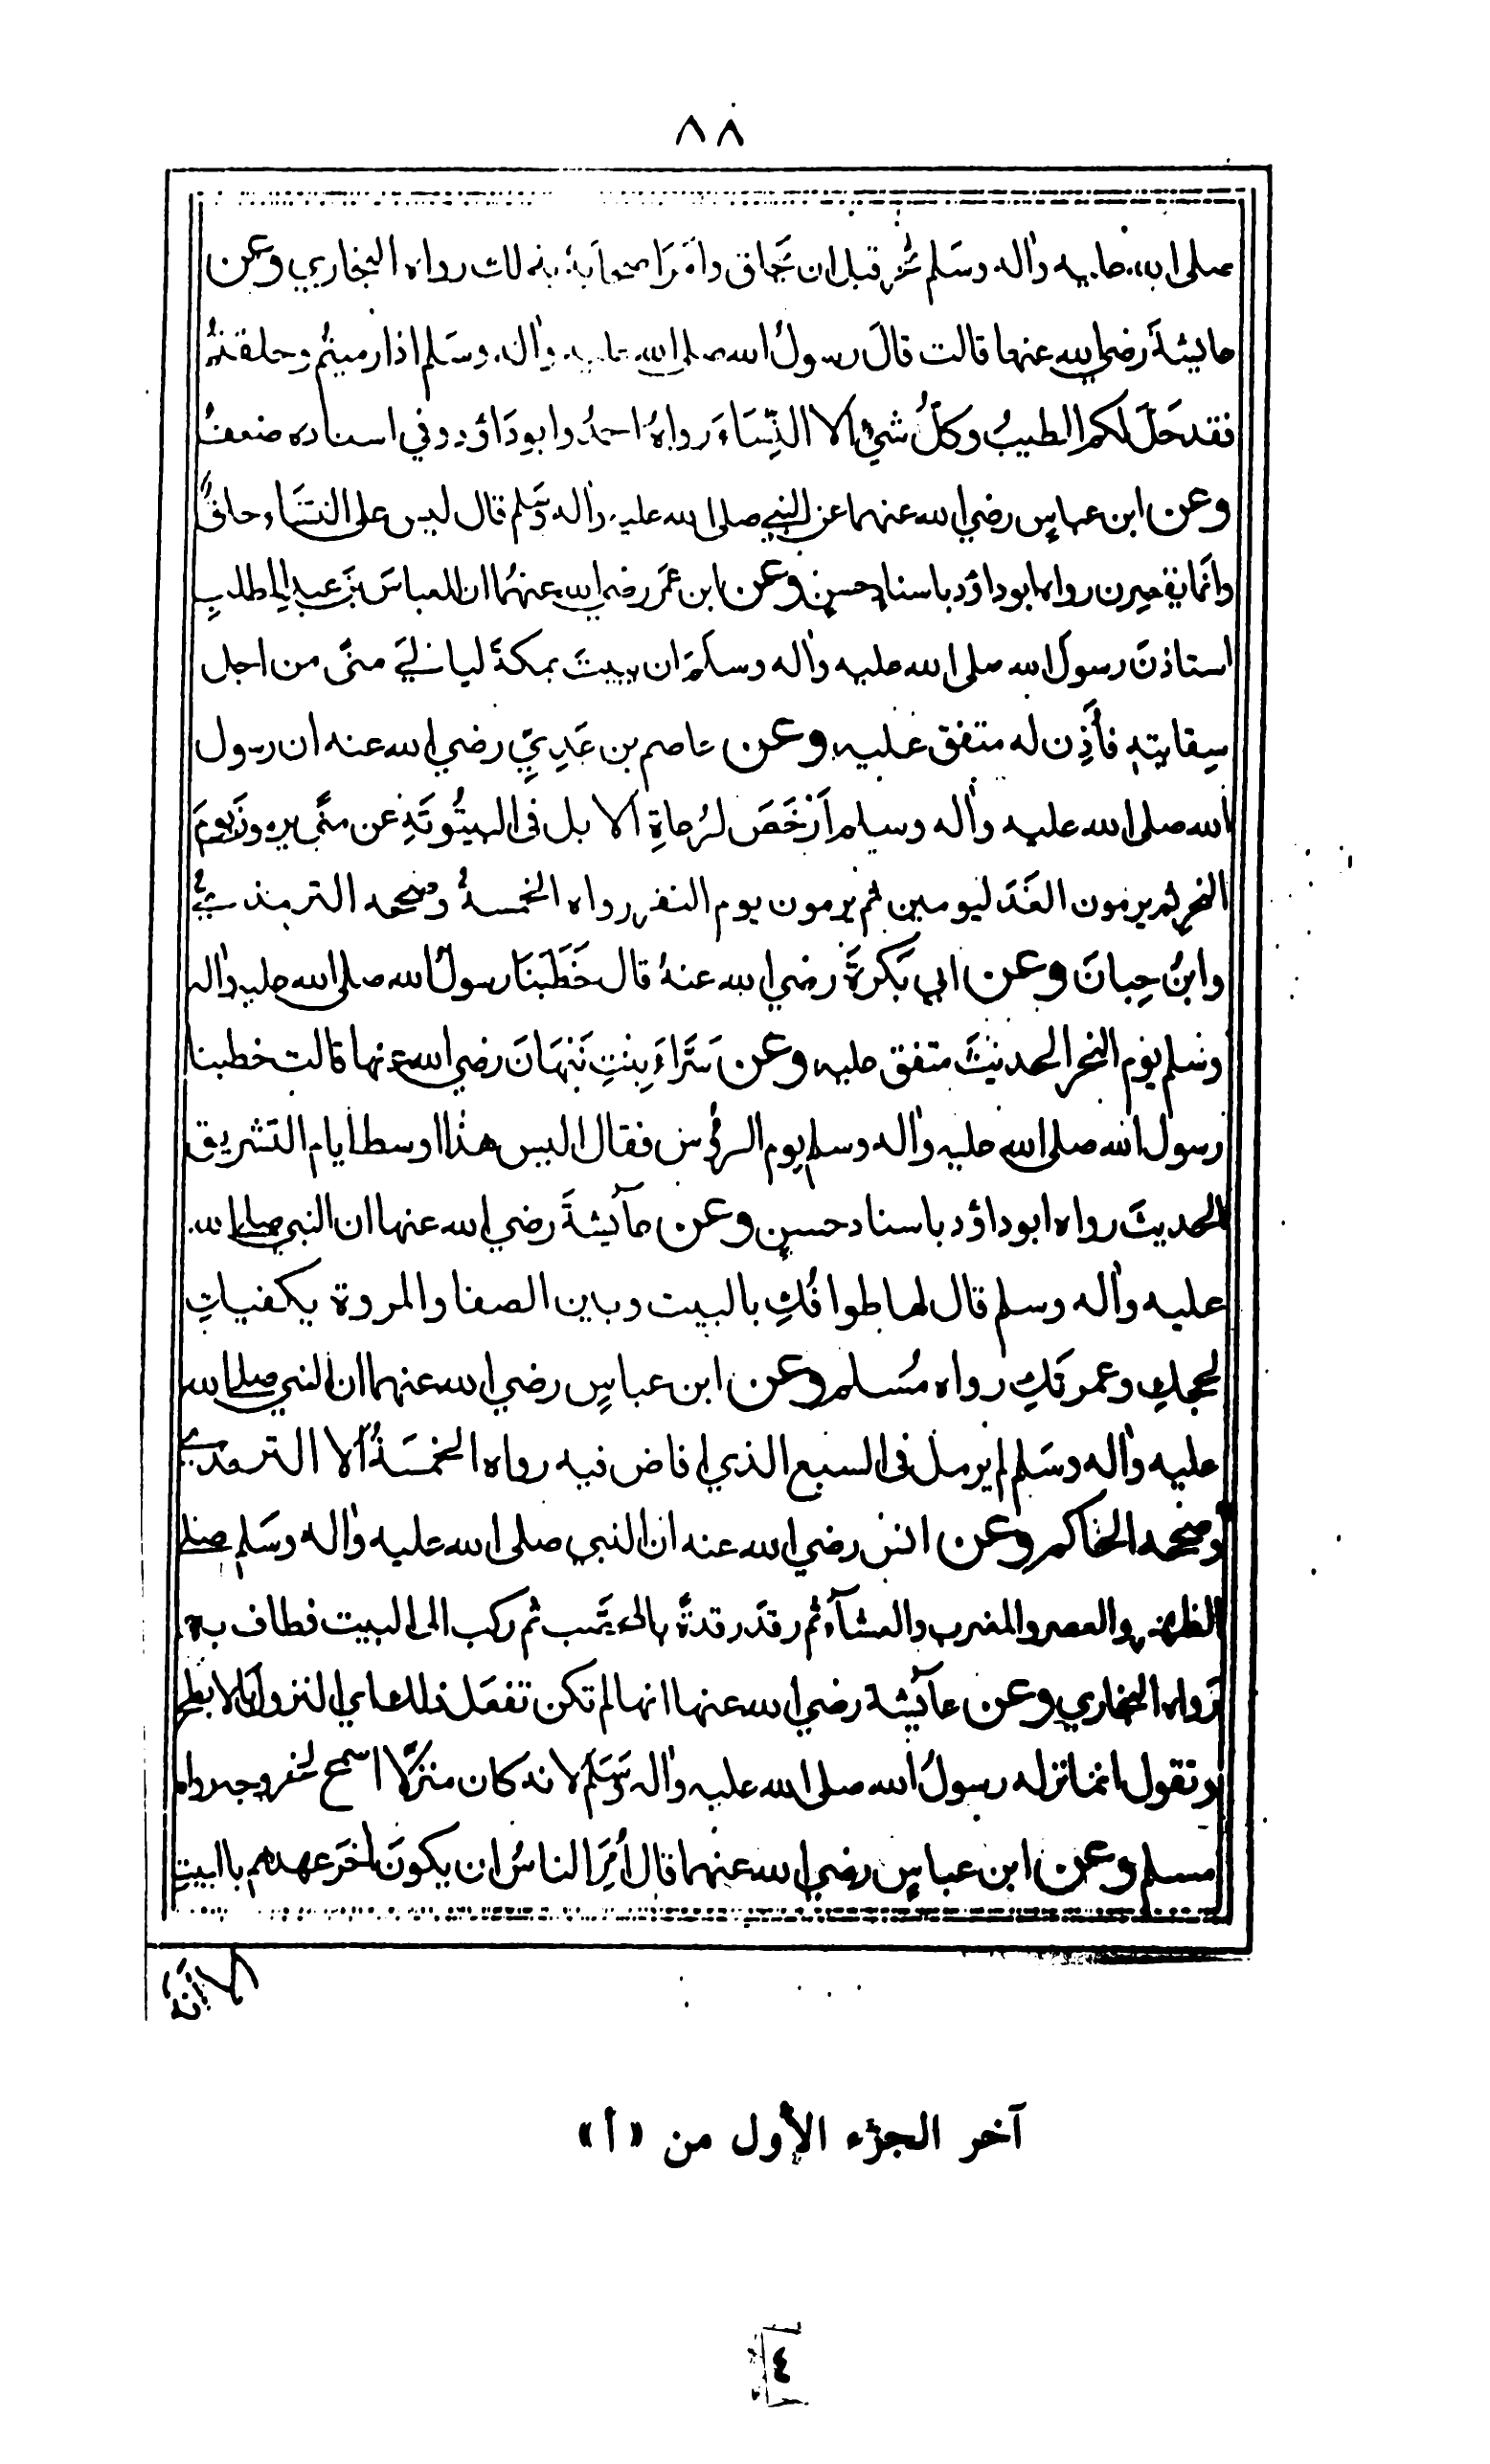 ٨٨
صلى الله عليه واٰله وسَلم نحر قبل ان يحلق واَمَرَ اصحابَهُ بذلك رواه البخاري وعن
عايشةَ رضي الله عنها قالت قالَ رسولُ الله صلى الله عليه واٰله وسَلم اذا رميتم وحلقتم
فقد حَلَّ لكم الطيبُ وكلُّ شيءٍ الا النِّسَاءَ رواهُ احمدُ وابو دَاؤد وفي اسناده ضعفٌ
وعن ابن عباسٍ رضي الله عنهما عن النبي صلى الله عليه واٰله وسَلم قال ليس على النسَاء حلقٌ
وانّما يقصرن رواه ابو داؤد باسناد حسنٍ وعن ابن عمَر رضي الله عنهُما ان العباسَ بنَ عبد المطلب
استاذنَ رسولَ الله صلى الله عليه واٰله وسلمَ ان يبيتَ بمكةَ ليالِيَ منىً من اجل
سِقايتِهٖ فأَذِن له متفق عليه وعن عاصم بن عَدِيٍّ رضي الله عنه ان رسول
الله صلى الله عليه واٰله وسلم اَرْخَصَ لرُعاةِ الابل فى البيتُوتَةِ عن منًى يرمونَ يومَ
النحر ثم يرمون الغَدَ ليومين ثم يرمون يوم النفر رواه الخمسةُ وصححه الترمذي
وابنُ حِبانَ وعن ابي بَكرةَ رضي الله عنهُ قال خَطَبَنَا رسولُ الله صلى الله عليه واٰله
وسلم يوم النحر الحديثَ متفق عليه وعن سَرَّاءَ بِنتِ نَبْهَانَ رضي الله عنها قالت خطبنا
رسول الله صلى الله عليه واٰله وسلم يوم الرؤس فقال اليس هذا اوسط ايام التشريق
الحديثَ رواه ابو داؤد باسناد حسنٍ وعن عآئشةَ رضي الله عنها ان النبي صلى الله
عليه واٰله وسلم قال لها طوافُكِ بالبيت وبين الصفا والمروة يكفيكِ
لحجكِ وعمرتكِ رواه مُسلم وعن ابن عباسٍ رضي الله عنهما ان النبي صلى الله
عليه واٰله وسَلم لم يرمل فى السبع الذي افاض فيه رواه الخمسَةُ الا الترمذي
وصححه الحاكم وعن انسٍ رضي الله عنه ان النبي صلى الله عليه واٰله وسَلم صلى
الظهر والعصر والمغرب والعشآء ثم رقدَ رقدةً بالمحصَّب ثم ركب الى البيت فطاف به
رواه البخاري وعن عآئشة رضي الله عنها انها لم تكن تفعَل ذلك اى النزولَ بالابطح
وتقول انما نزله رسولُ الله صلى الله عليه واٰله وَسَلم لانه كان منزلًا اسمح لخروجه رواه
مسلم وعن ابن عباسٍ رضي الله عنهما قال اُمِرَ الناسُ ان يكونَ اٰخرَ عهدهم بالبيت
الا انه
آخر الجزء الأول من «أ»
٤